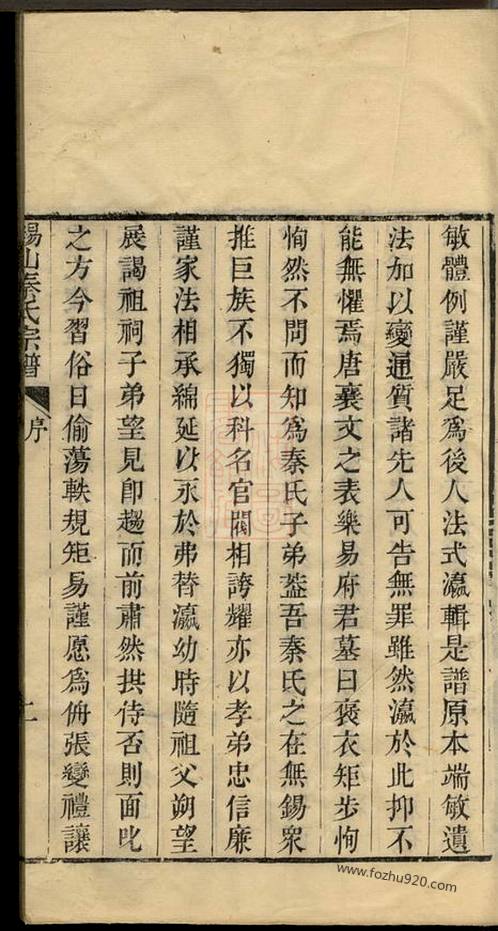 敏體例謹嚴足爲後人法式瀛輯是譜原本端敏遺
法加以變通質諸先人可告無罪雖然瀛於此抑不
能無懼焉唐襄文之表樂易府君墓曰褒衣矩步恂
恂然不問而知爲秦氏子弟葢吾秦氏之在無錫衆
推巨族不獨以科名官閥相誇耀亦以孝弟忠信廉
謹家法相承綿延以永於弗替瀛幼時隨祖父朔望
展謁祖祠子弟望見卽趨而前肅然拱侍否則面叱
之方今習俗日偷蕩軼規矩易謹愿爲侜張變禮讓
錫山秦氏宗譜 序
www.fozhu920.com